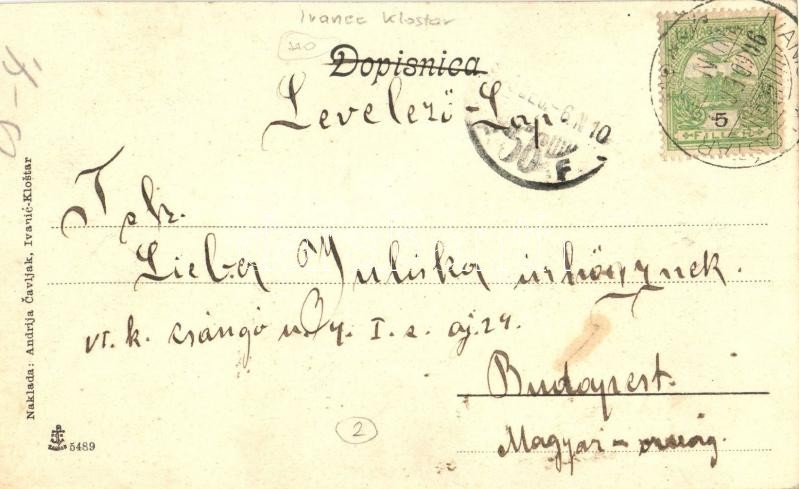 Ivanec Klostar
Dopisnica
Levelező-Lap
5
FILLÉR
Tek.
Lieber Juliska úrhögynek.
VI. k. csángó u. 4. I. e. aj. 24.
Budapest.
Magyar-ország.
2
Naklada: Andrija Čavljak, Ivanić-Kloštar
5489